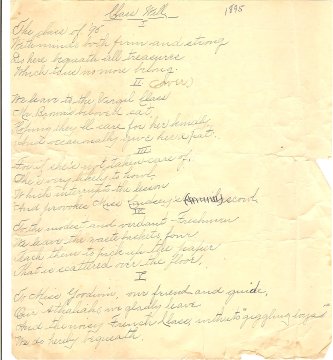 Class Will
1895
I
The class of '95
With minds both firm and strong
Do here bequeath all treasures
Which to us no more belong.
II (over)
We leave to the Virgil Class
Mr. beloved cat,
Hoping they'll care for her kindly
And occasionally give her a pat.
III
For if she's not taken care of,
She's very likely to howl,
Which interrupts the lesson
And provokes Miss
IV
To the modest and verdant Freshmen
We leave the waste baskets four
And them to pick up the paper
That is scattered over the floor.
V
To Miss Goodwin, our friend and guide,
Our we gladly leave
And the noisy French Class, with its "giggling boys"
We do hereby bequeath